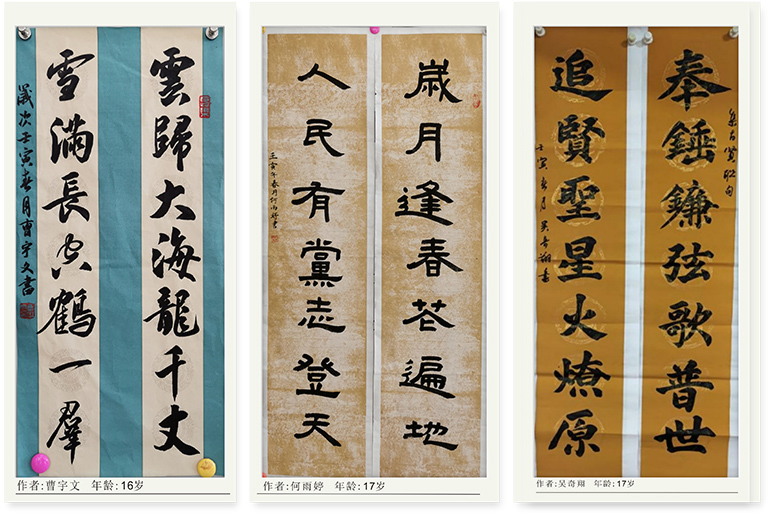 雲歸大海龍千丈
雪滿長空鶴一羣
歲次壬寅春月曹宇文書
作者:曹宇文 年龄:16岁
歲月逢春花遍地
人民有黨志登天
壬寅年春月何雨婷書
作者:何雨婷 年龄:17岁
集古賢聯句
奉錘鐮弦歌普世
追賢聖星火燎原
壬寅春月吴奇翔書
作者:吴奇翔 年龄:17岁